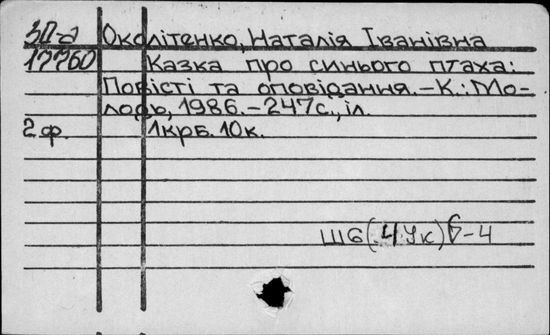 ЗП-а Околітенко, Наталія Іванівна
17760 Казка про синього птаха:
Повісті та оповідання. – К.: Мо-
лодь, 1986. – 247с., іл.
2 ф. 1крб. 10к.
Ш6(4Ук)6-4